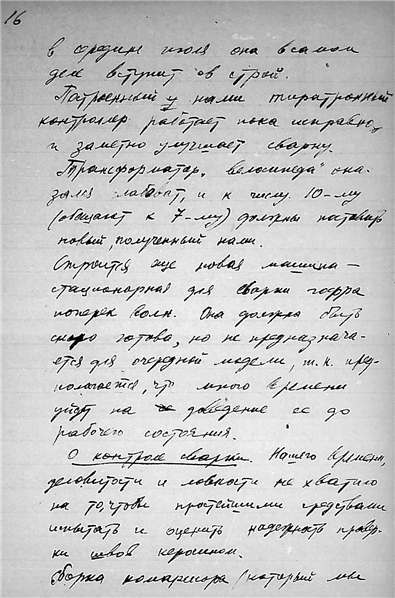 16
в средине июля она в самом
деле вступит в строй."
Построенный у нами тиратронный
контролер работает пока исправно,
и заметно улучшает сварку.
Трансформатор "велосипеда" ока-
зался слабоват, и к числу 10-му
(обещают к 7-му) должны поставить
новый, полученный нами.
Строится еще новая машина -
стационарная для сварки гофра
поперек волн. Она должна быть
скоро готова, но не предназнача-
ется для очередной модели, т.к. пред-
полагается, что много времени
уйдет на доведение ее до
рабочего состояния.
О контроле сварки. Нашего времени,
деловитости и ловкости не хватило
на то, чтобы простейшими средствами
испытать и оценить надежность провер-
ки швов керосином.
Сборка компрессора (который мы